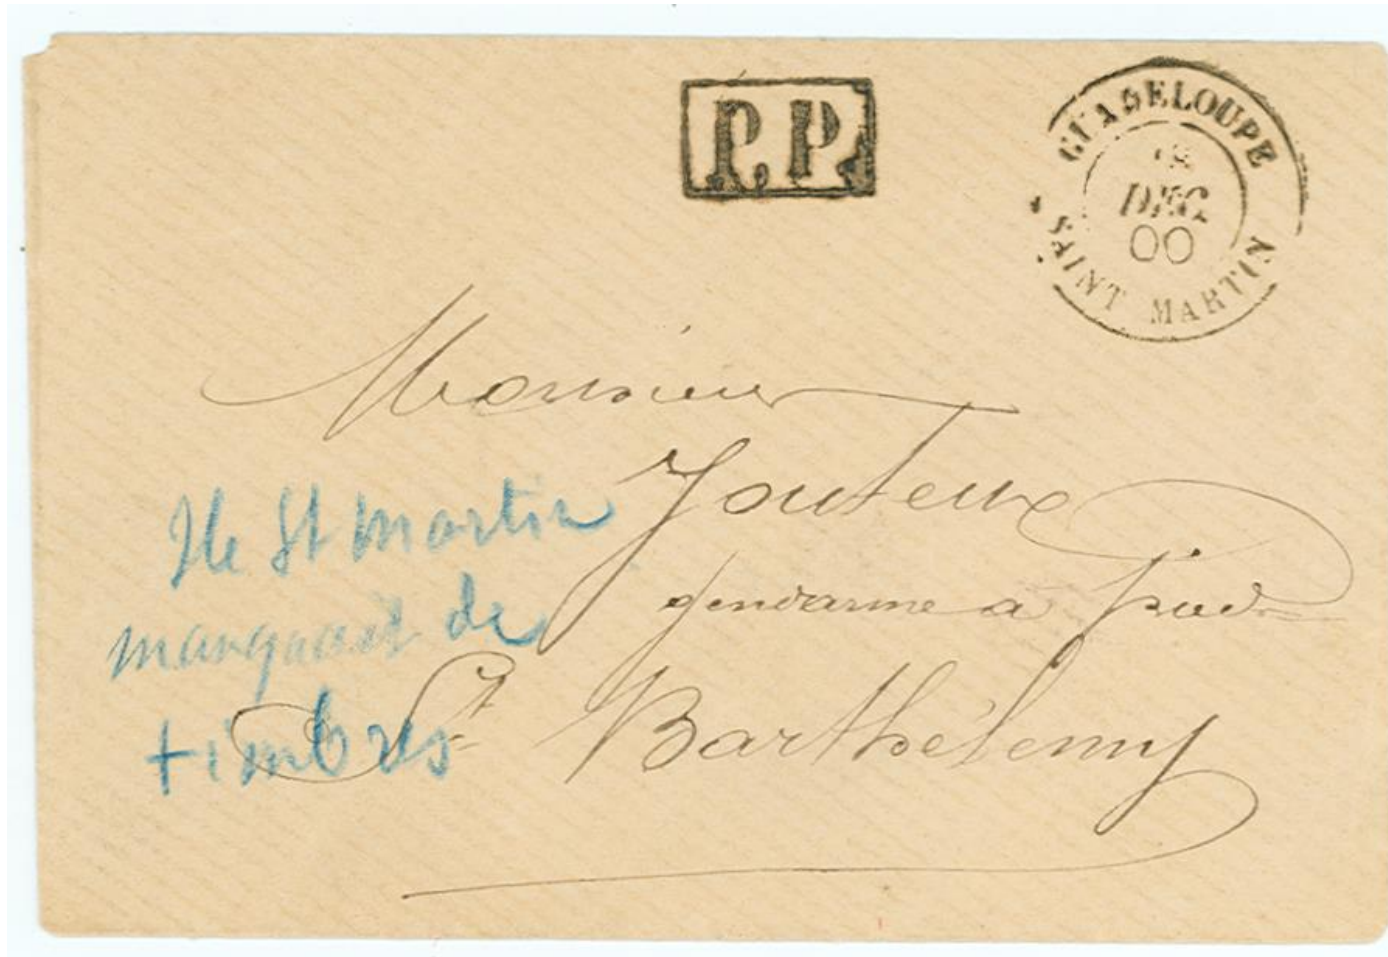 P.P.
GUADELOUPE
DEC
00
SAINT MARTIN
Monsieur
Jouteux
gendarme à pied
St Barthélemy
Ile St Martin
manquait de
timbres